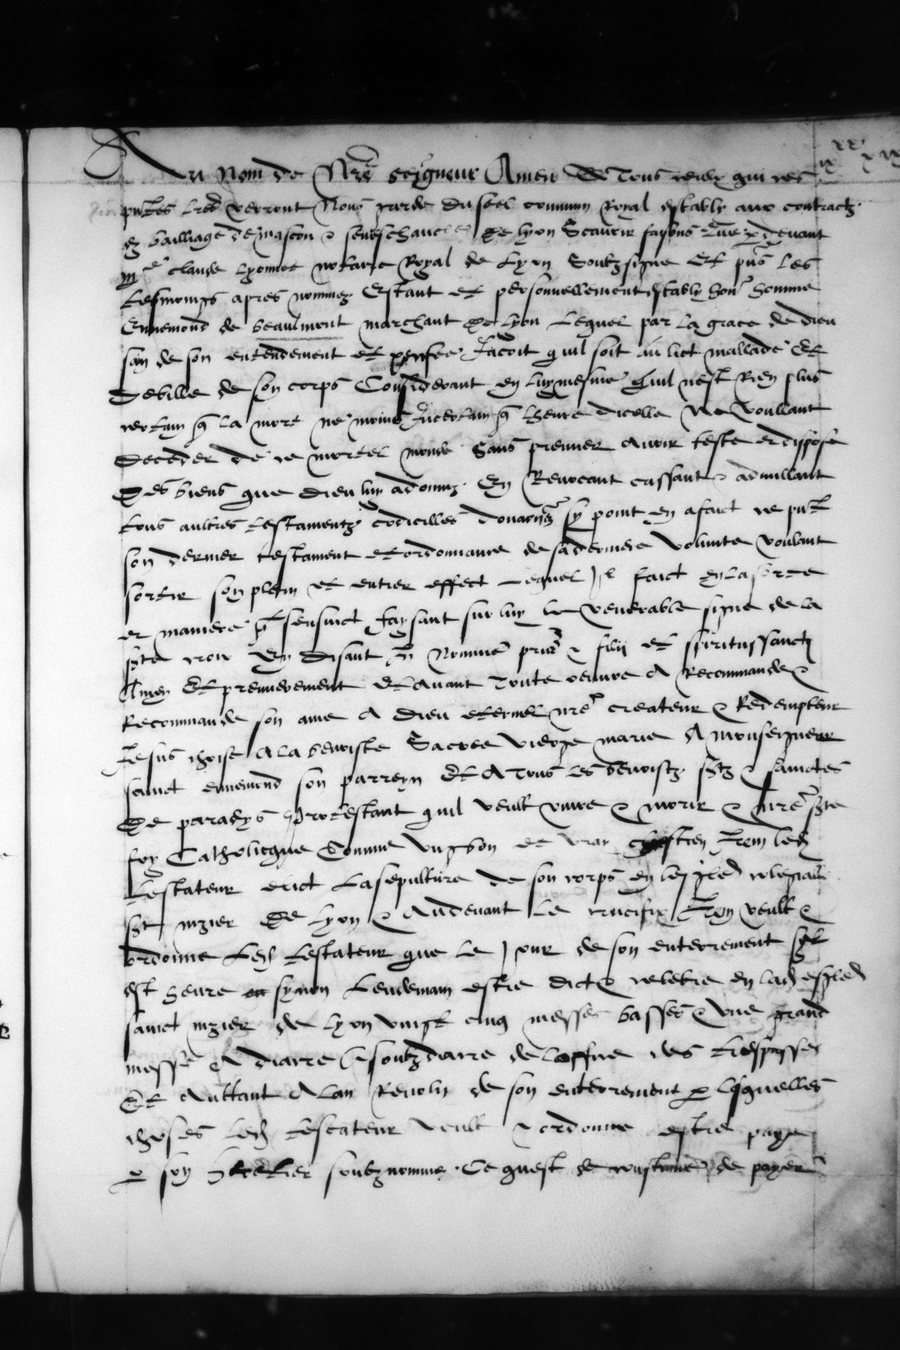 Au Nom de Nre seigneur Amen A Tous ceulx qui ces
pntes lres verront Nous garde du seel commun Royal estably aux contractz
es bailliage de mascon & seneschaucee de lyon Scavoir faisons que p devant
me claude lyonnet notaire Royal de Lyon Soubzsigne Et pns les
tesmoings apres nommez Estant et personnellement estably honn homme
Ennemond de beaulmont marchant de lyon Lequel par la grace de dieu
sain de son entendement et pensee Jacoit quil soit au lict mallade Et
debille de son corps Considerant en luy mesme quil nest Rien plus
certain q la mort ne moins Incertain q lheure dicelle Ne voullant
decedder de ce mortel monde Sans premier avoir teste et dispose
des biens que dieu luy a donnez En Revocant cassant & adnullant
tous aultres testamentz codicilles donacions sy point en a faict ce pnt
son dernier testament et ordonnance de sa derniere volunte voulant
sortir son plein et entier effect Lequel Il faict en la sorte
et maniere q sensuict faysant sur luy le venerable signe de la
ste croix En disant In nomine pris & filii et spiritussancti
Amen Et premierement Et avant toute oeuvre A Recommande &
Recommande son ame A dieu eternel nre createur & Redempteur
Jesus christ A la benoiste Sacree vierge marie A monseigneur
sainct ennemond son parreyn Et A tous les benoistz stz & sainctes
de paradys Protestant quil veult vivre & morir & nre ste
foy Catholicque Comme ung bon et vray chrestien Item led
testateur elict La sepulture de son corps en leglise collegialle
St nizier de Lyon & Audevant le crucifix Item veult &
ordonne led testateur que le Jour de son enterrement sil
est heure synon Lendemain estre dict & celebre en lad esglise
sainct nizier de Lyon vingt cinq messes basses & une grand
messe A diacre & soubzdiacre de loffice des trespasses
Et Aultant A lan Revolu de son enterrement p lesquelles
choses led testateur veult & ordonne estre paye
p son heritier soubz nomme Ce quest de coustume de payer